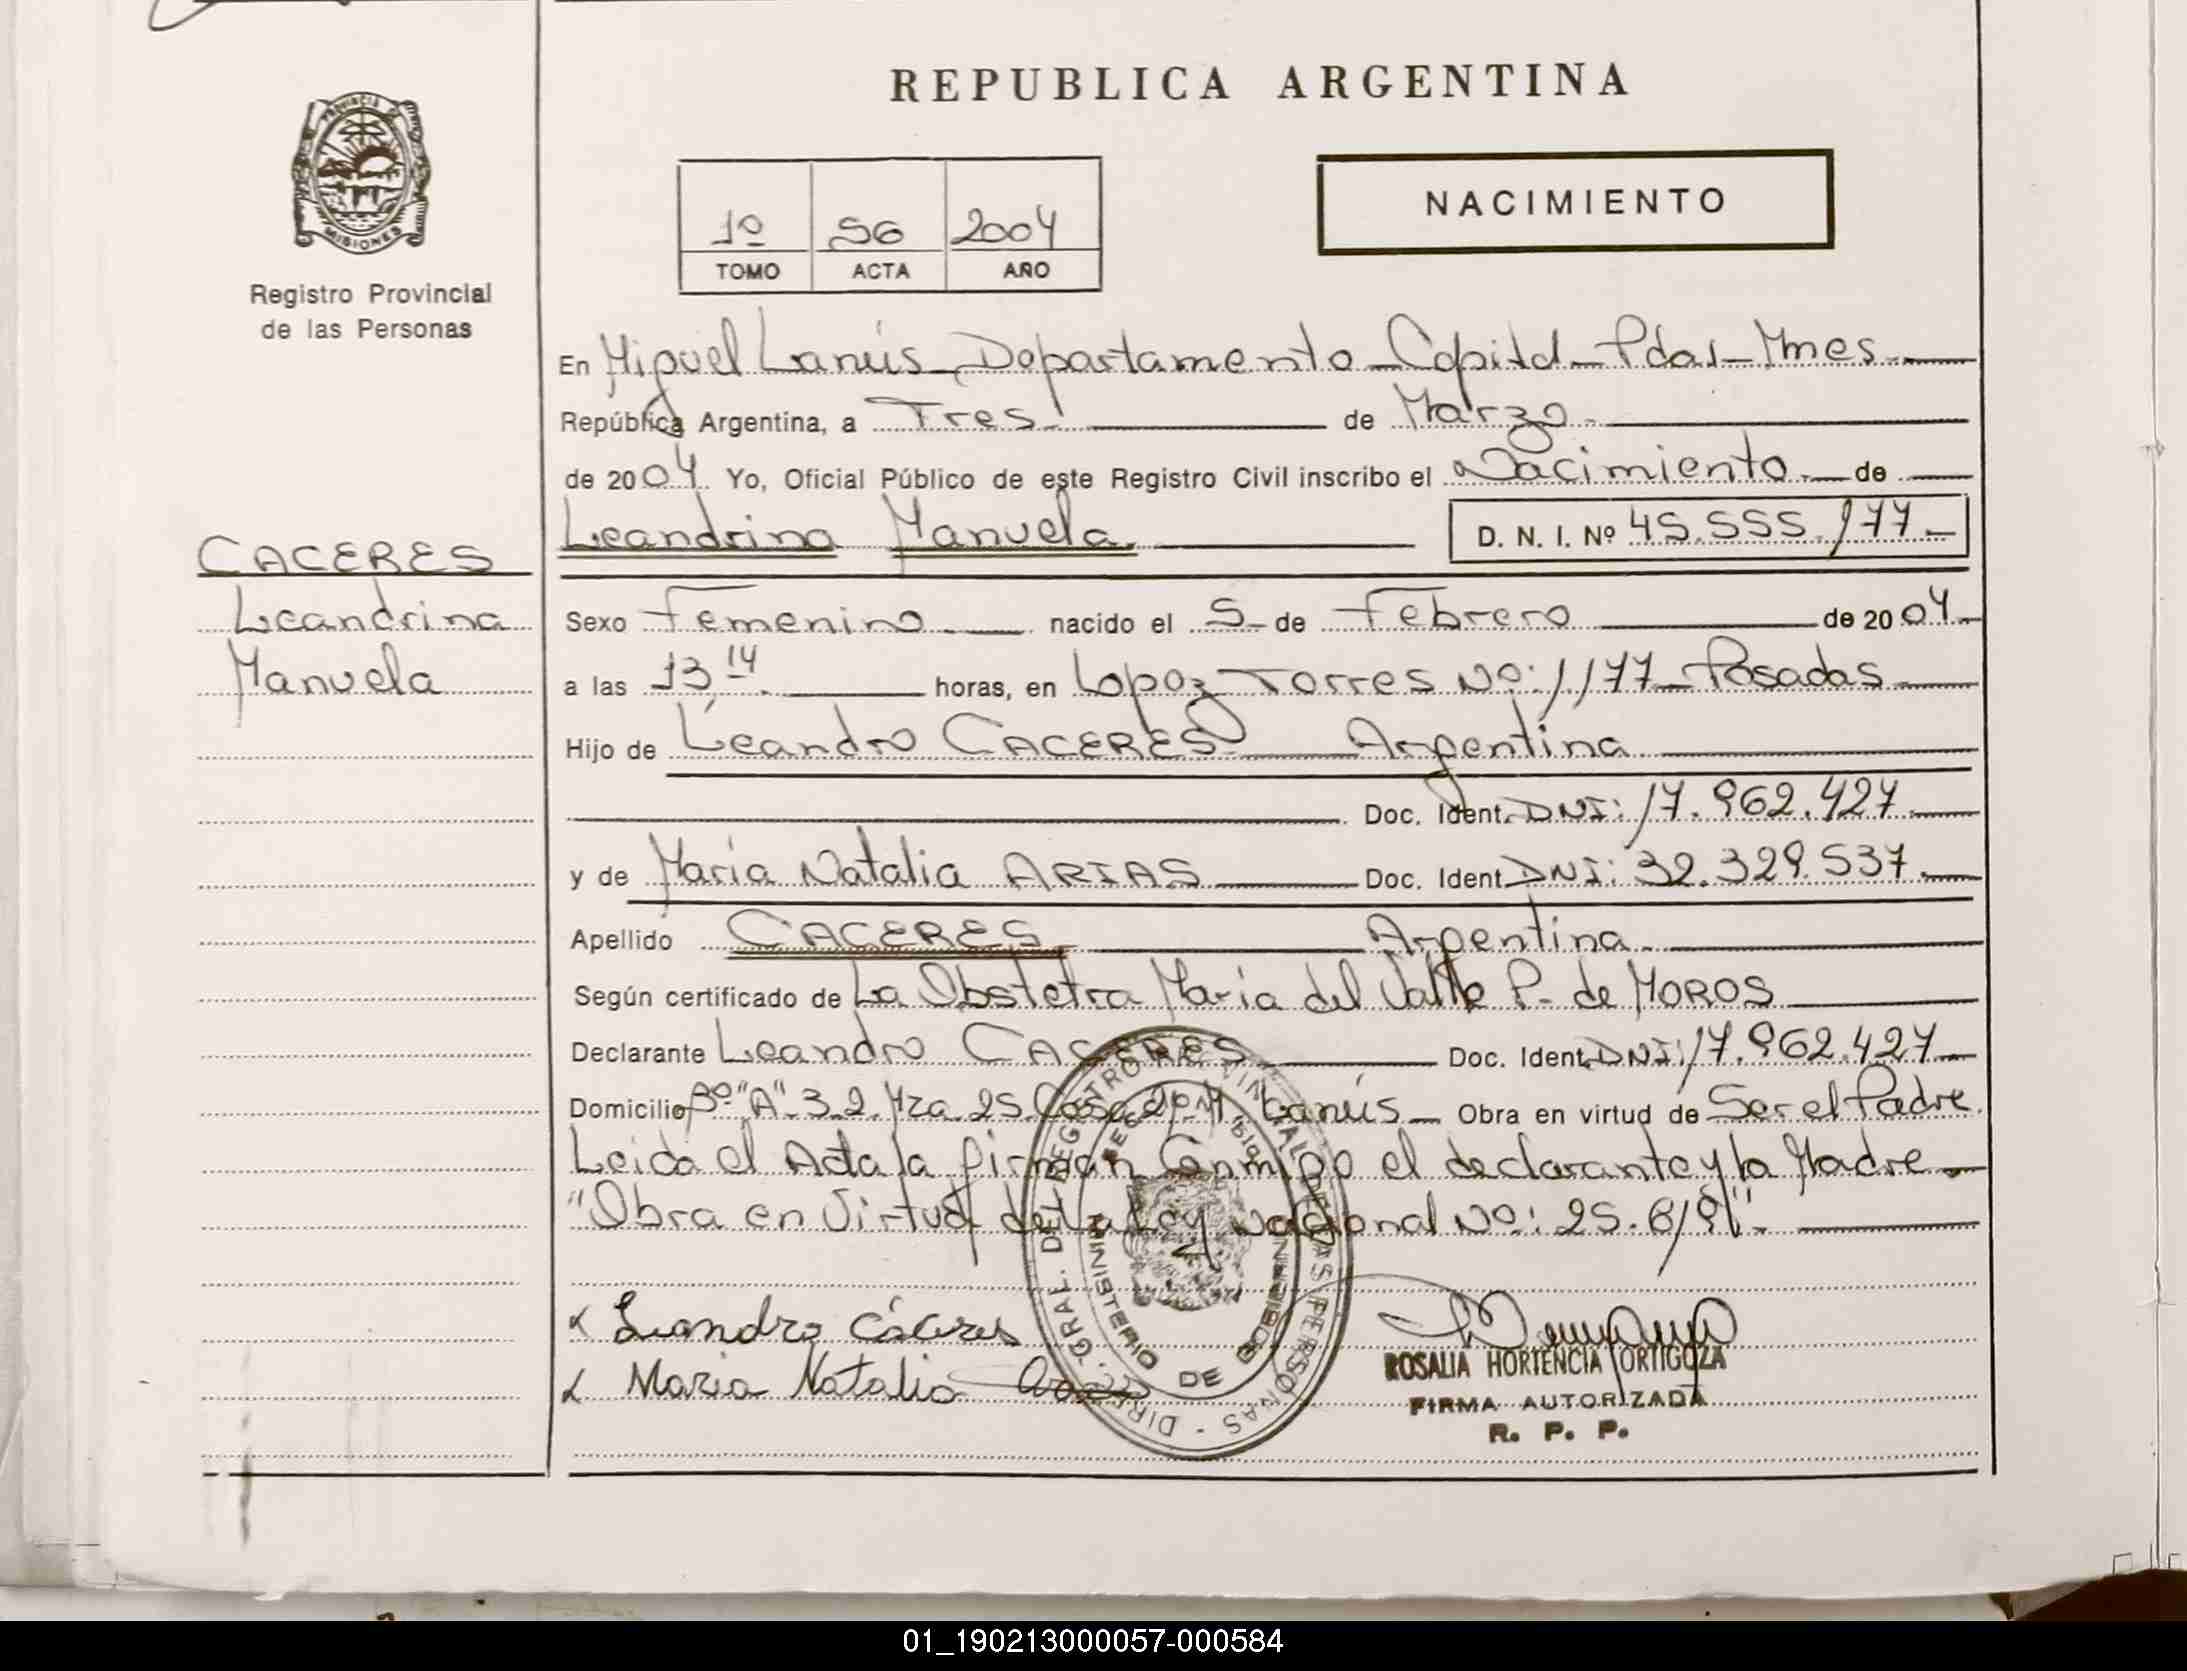 REPUBLICA ARGENTINA
PROVINCIA DE MISIONES
Registro Provincial
de las Personas
NACIMIENTO
1º 56 2004
TOMO ACTA AÑO
En Miguel Lanús - Departamento - Capital - Pdas - Mnes.
República Argentina, a Tres. de Marzo.
de 2004 Yo, Oficial Público de este Registro Civil inscribo el Nacimiento. de
Leandrina Manuela. D. N. I. Nº 45.555.177.-
CACERES
Leandrina
Manuela
Sexo Femenino. nacido el 5- de Febrero de 2004.
a las 13,14. horas, en Lopez Torres Nº: 1177 - Posadas
Hijo de Leandro CACERES Argentina
Doc. Ident. DNI: 17.962.427.
y de María Natalia ARIAS Doc. Ident DNI: 32.329.537.
Apellido CACERES. Argentina.
Según certificado de La Obstetra María del Valle P. de MOROS
Declarante Leandro CACERES Doc. Ident. DNI: 17.962.427.
Domicilio Bº "A" 3.2. Mza. 25. Casa 20 M. Lanús - Obra en virtud de Ser el Padre.
Leida el Acta la firman Conmigo el declarante y la Madre -
"Obra en Virtud de la Ley Nacional Nº: 25.819".
Leandro Cáceres
Maria Natalia Arias
DIREC. GRAL. DEL REGISTRO PROVINCIAL DE LAS PERSONAS
MINISTERIO DE GOBIERNO
ROSALIA HORTENCIA ORTIGOZA
FIRMA AUTORIZADA
R. P. P.
01_190213000057-000584